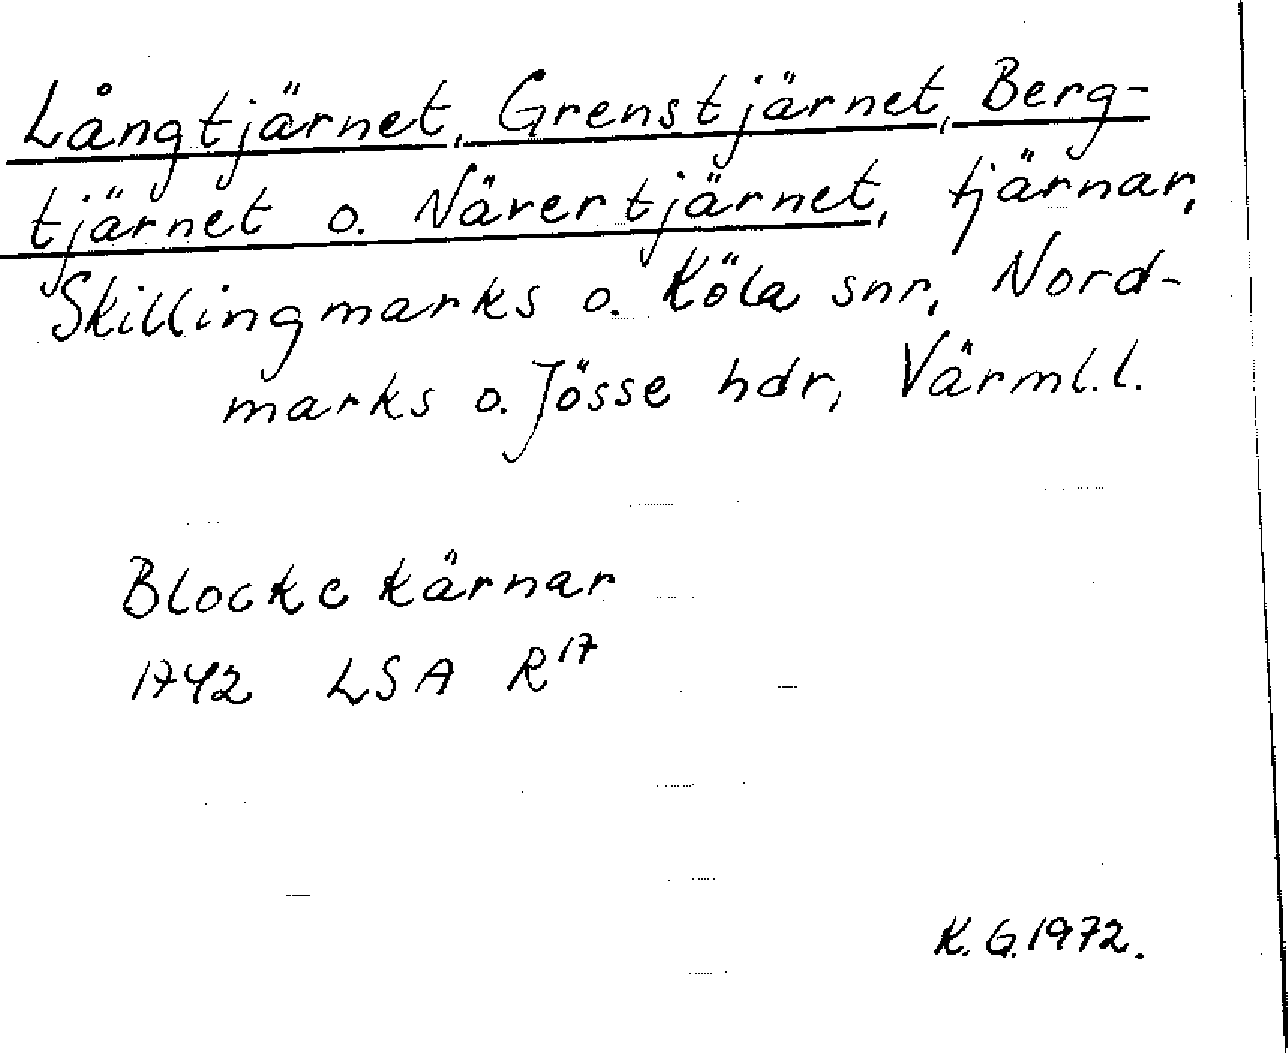 Långtjärnet, Grenstjärnet, Berg-
tjärnet o. Nävertjärnet, tjärnar,
Skillingmarks o. Köla snr, Nord-
marks o. Jösse hdr, Värml. l.
Blocke kärnar
1742 LSA R17
K. G. 1972.